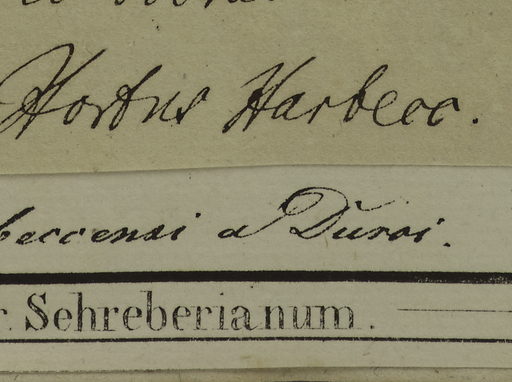 Hortus Harbecc.
beccensi a Duroi.
r. Schreberianum.